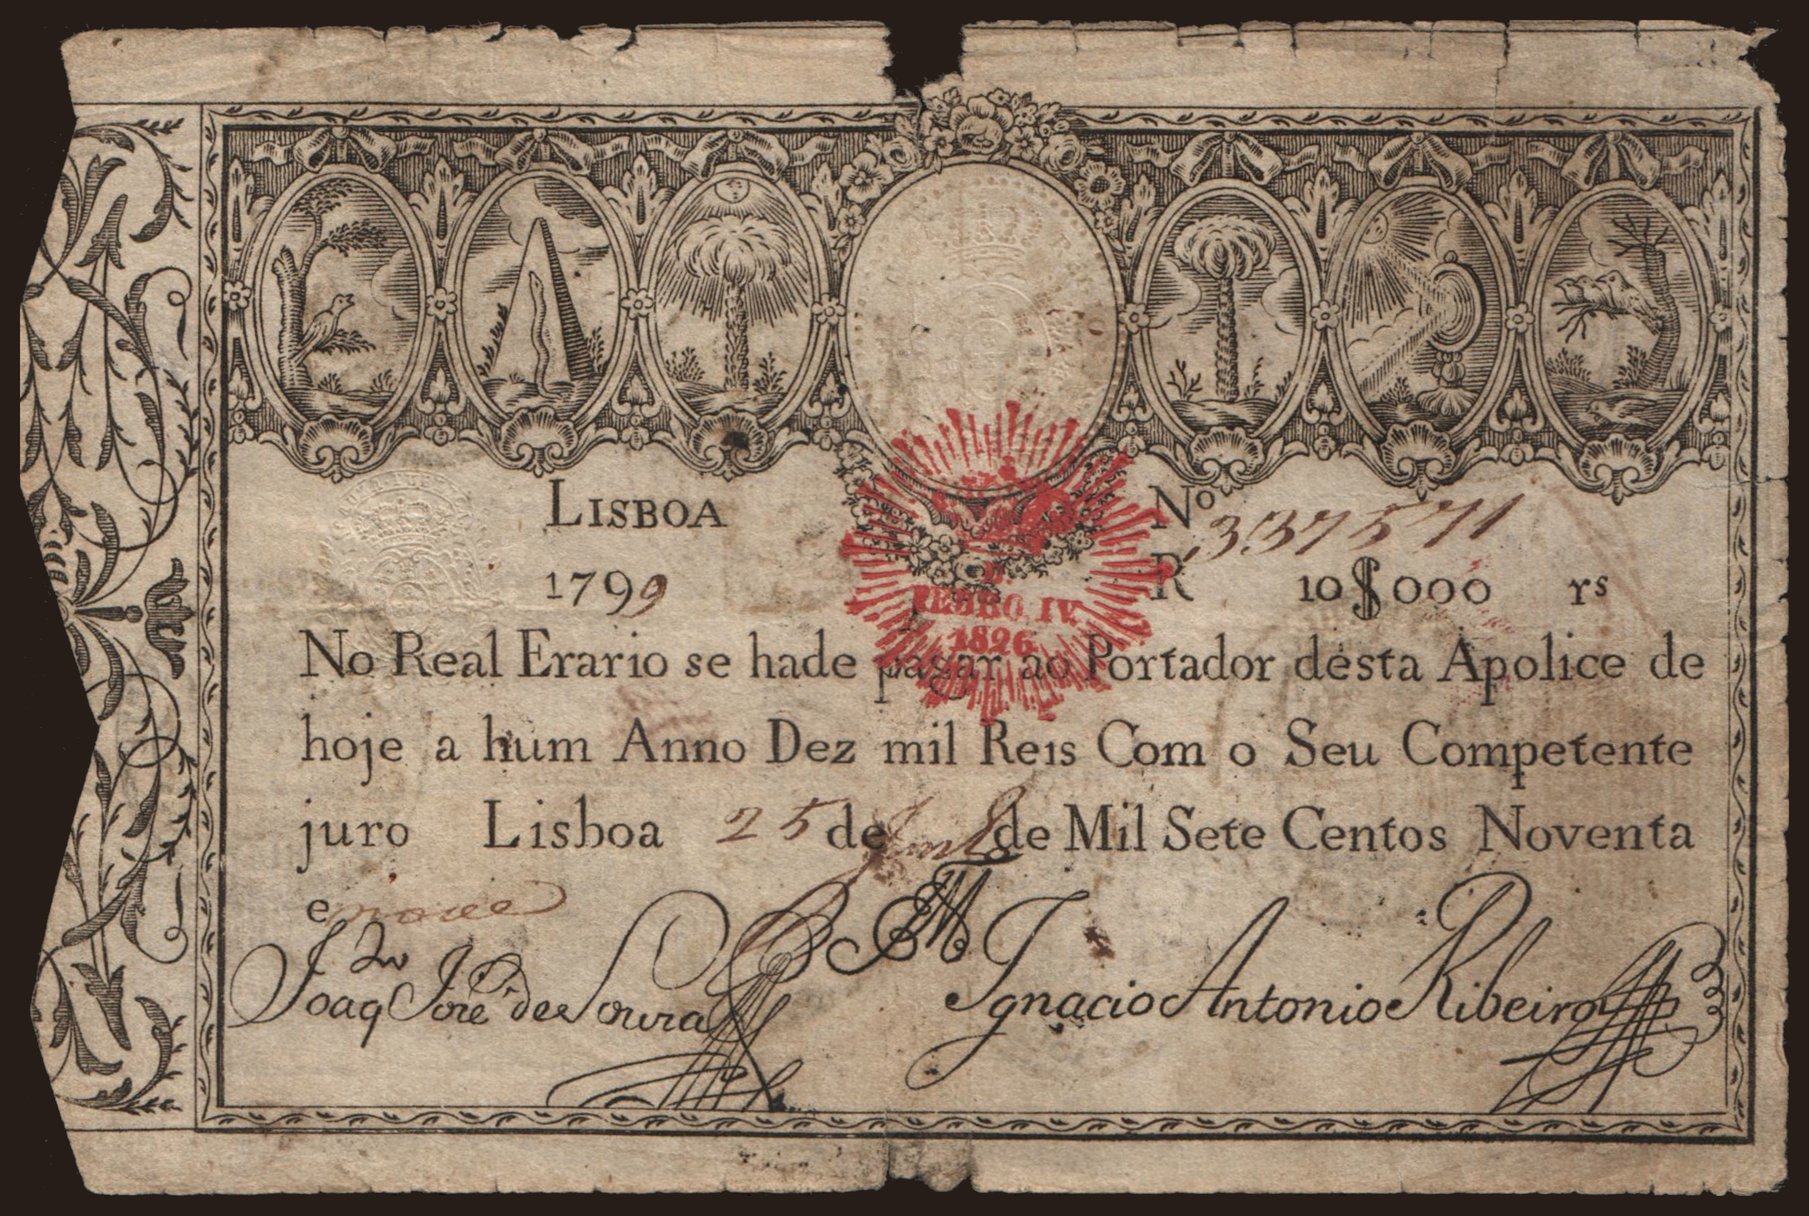 LISBOA
1799
Nº 337571
R 10$000 rs
PEDRO IV.
1826
No Real Erario se hade pagar ao Portador desta Apolice de
hoje a hum Anno Dez mil Reis Com o Seu Competente
juro Lisboa 25 de de Mil Sete Centos Noventa
e nove
Joaq Jozé de Souza
Ignacio Antonio Ribeiro